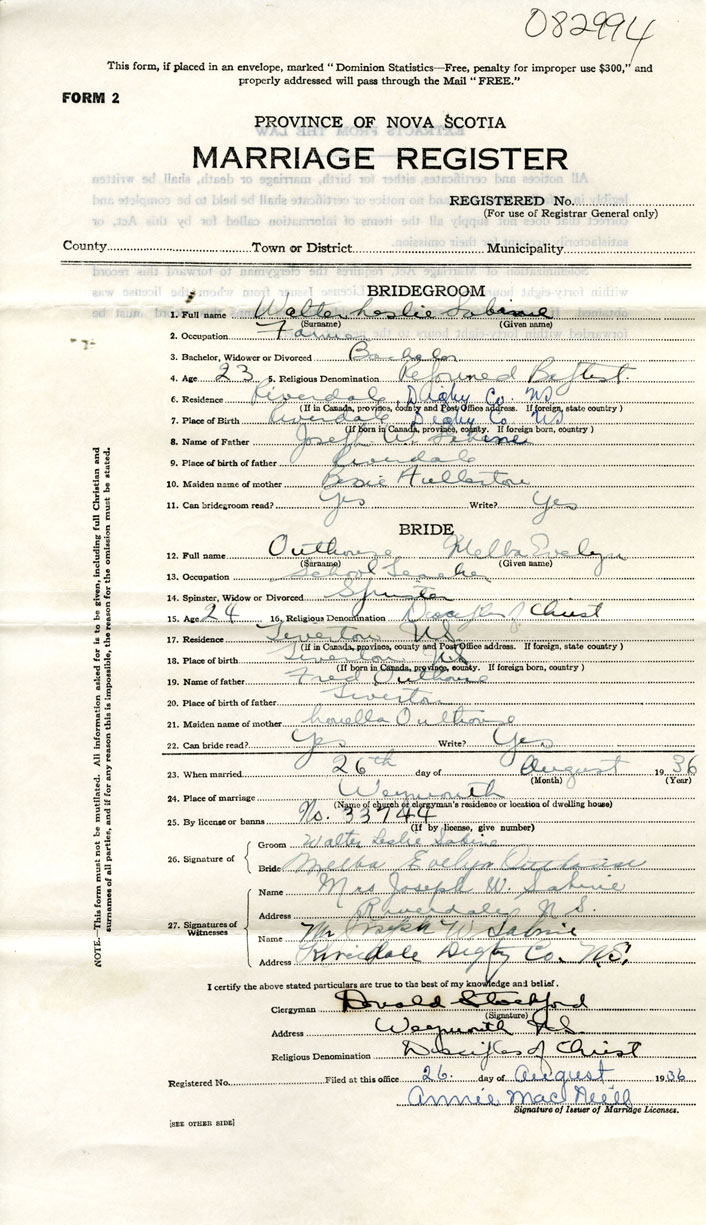 082994
This form, if placed in an envelope, marked "Dominion Statistics—Free, penalty for improper use $300," and
properly addressed will pass through the Mail "FREE."
FORM 2
PROVINCE OF NOVA SCOTIA
MARRIAGE REGISTER
REGISTERED No.
(For use of Registrar General only)
County Town or District Municipality
BRIDEGROOM
1. Full name Walter Leslie Sabine
(Surname) (Given name)
2. Occupation Farmer
3. Bachelor, Widower or Divorced Bachelor
4. Age 23 5. Religious Denomination Reformed Baptist
6. Residence Riverdale Digby Co. N.S.
(If in Canada, province, county and Post Office address. If foreign, state country)
7. Place of Birth Riverdale Digby Co. N.S.
(If born in Canada, province, county. If foreign born, country)
8. Name of Father Joseph W. Sabine
9. Place of birth of father Riverdale
10. Maiden name of mother Bessie Fullerton
11. Can bridegroom read? Yes Write? Yes
BRIDE
12. Full name Outhouse Melba Evelyn
(Surname) (Given name)
13. Occupation School Teacher
14. Spinster, Widow or Divorced Spinster
15. Age 24 16. Religious Denomination Disciples of Christ
17. Residence Tiverton N.S.
(If in Canada, province, county and Post Office address. If foreign, state country)
18. Place of birth Tiverton N.S.
(If born in Canada, province, county. If foreign born, country)
19. Name of father Fred Outhouse
20. Place of birth of father Tiverton
21. Maiden name of mother Louella Outhouse
22. Can bride read? Yes Write? Yes
23. When married 26th day of August 1936
(Month) (Year)
24. Place of marriage Weymouth
(Name of church or clergyman's residence or location of dwelling house)
25. By license or banns No. 33744
(If by license, give number)
26. Signature of Groom Walter Leslie Sabine
Bride Melba Evelyn Outhouse
27. Signatures of Witnesses
Name Mrs Joseph W. Sabine
Address Riverdale, N.S.
Name Mr Joseph W Sabine
Address Riverdale Digby Co. N.S.
I certify the above stated particulars are true to the best of my knowledge and belief.
Clergyman Donald Stockford
(Signature)
Address Weymouth N.S.
Religious Denomination Disciples of Christ
Registered No. Filed at this office 26. day of August 1936
Annie MacNeill
Signature of Issuer of Marriage Licenses.
[SEE OTHER SIDE]
NOTE.—This form must not be mutilated. All information asked for is to be given, including full Christian and
surnames of all parties, and if for any reason this is impossible, the reason for the omission must be stated.